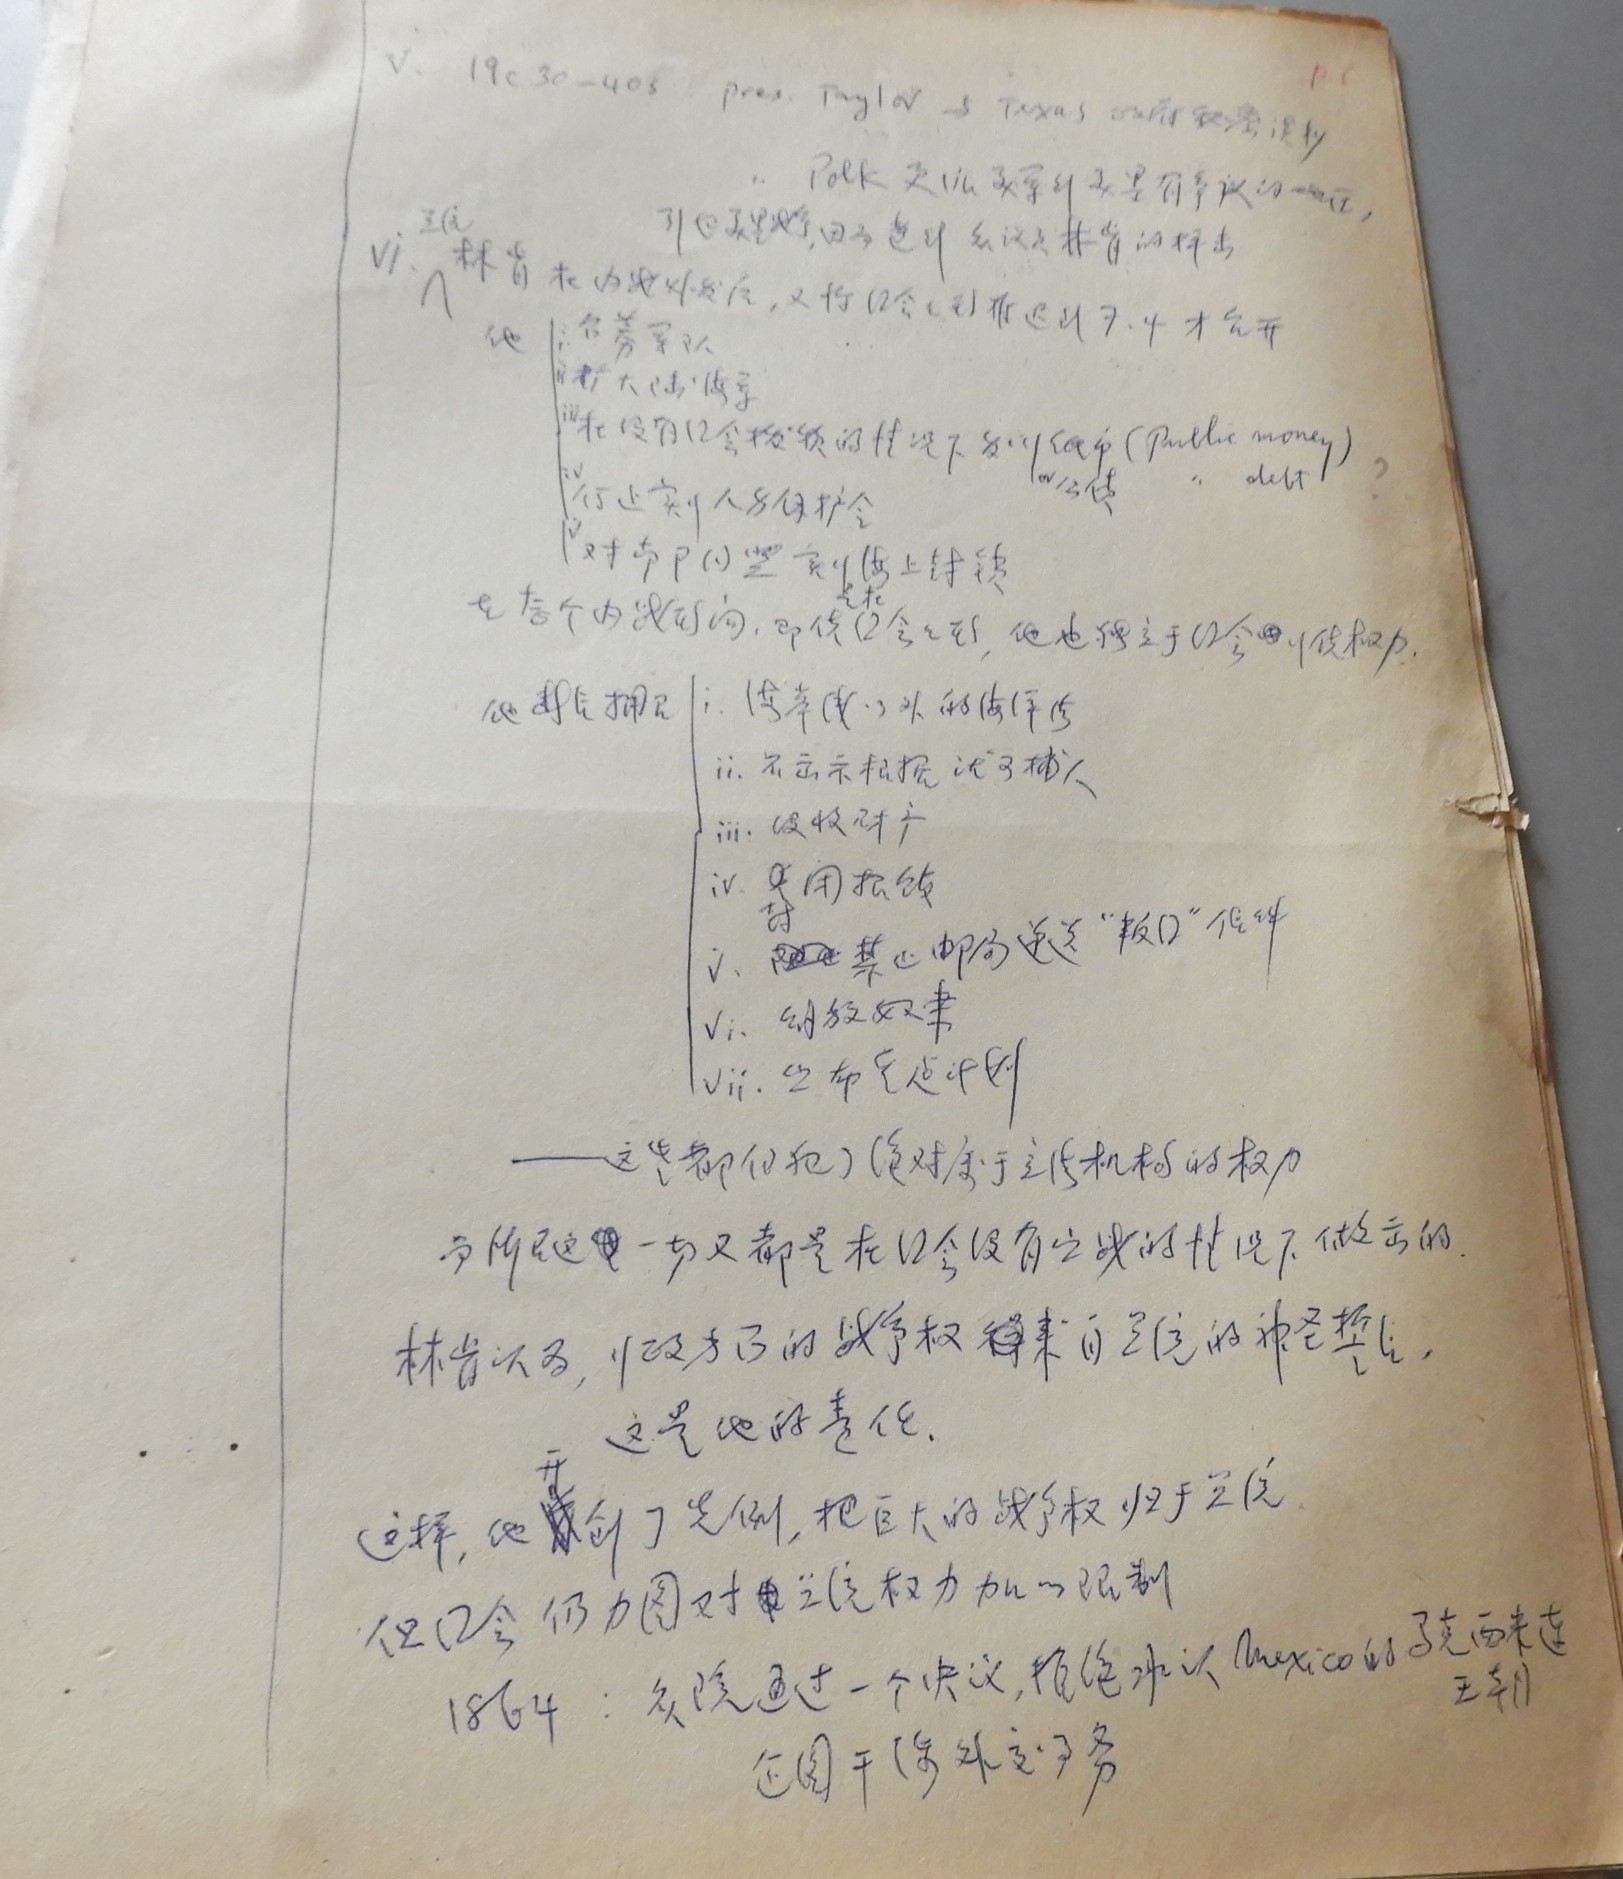 p.6
V. 19c 30-40s pres. Taylor 与 Texas 政府秘密谈判
〃 Polk 更派美军到美墨有争议的地区,
引起美墨战争,因而遭到众议员林肯的抨击
vi. 总统林肯在内战爆发后,又将囗会推迟到7.4才召开
他 i. 召募军队
ii 扩大陆海军
iii 在没有囗会拨款的情况下发行纸币 (Public money)
or 公债 〃 debt ?
iv 停止实行人身保护令
v 对南部实行海上封锁
在整个内战期间,即使囗会在,他也独立于囗会行使权力.
他 i. 海岸线以外的海洋法
ii. 不出示根据就可捕人
iii. 没收财产
iv. 封闭报馆
v. 禁止邮局递送“叛囗”信件
vi. 解放奴隶
vii. 公布重建计划
——这些都侵犯了绝对属于立法机构的权力
而所有这一切又都是在囗会没有宣战的情况下做出的.
林肯认为,行政方面的战争权来自总统的神圣誓言,
这是他的责任.
这样,他开创了先例,把巨大的战争权归于总统
但囗会仍力图对总统权力加以限制
1864:众院通过一个决议,拒绝承认Mexico的马克西米连
王朝
企图干涉外交事务